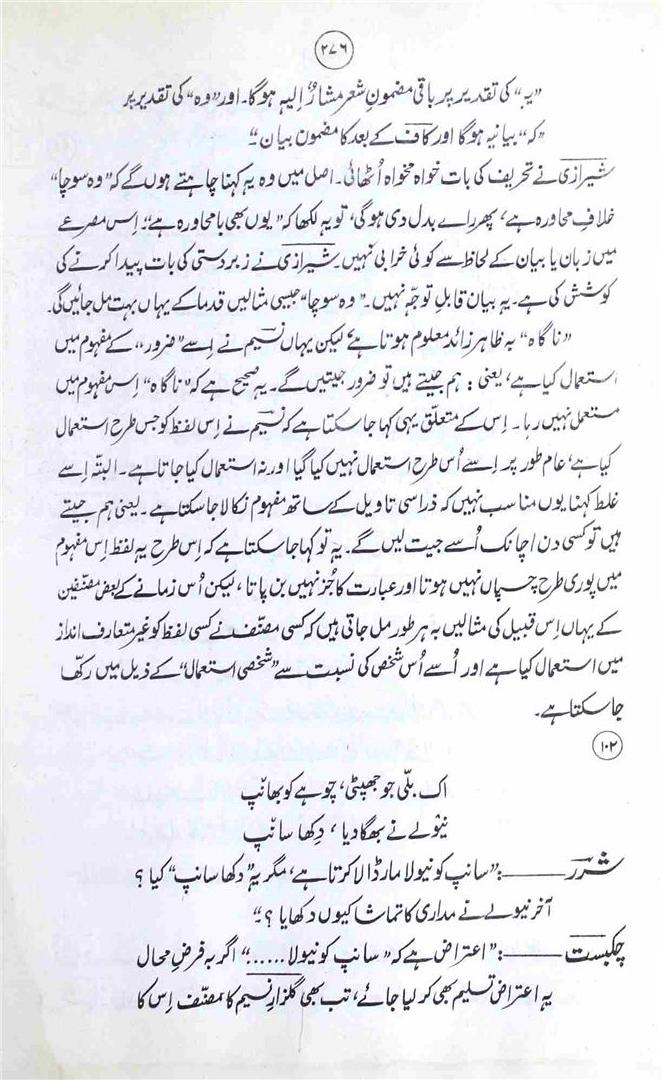 ۲۷۶
"یہ" کی تقدیر پر باقی مضمونِ شعر مشارٌ اِلیہ ہوگا۔ اور "وہ" کی تقدیر پر
"کہ" بیانیہ ہوگا اور کاف کے بعد کا مضمون بیان۔"
شیرازی نے تحریف کی بات خواہ مخواہ اُٹھائی۔ اصل میں وہ یہ کہنا چاہتے ہوں گے کہ "وہ سوچا"
خلافِ محاورہ ہے، پھر راے بدل دی ہوگی، تو یہ لکھا کہ "یوں بھی با محاورہ ہے"۔ اِس مصرعے
میں زبان یا بیان کے لحاظ سے کوئی خرابی نہیں۔ شیرازی نے زبردستی کی بات پیدا کرنے کی
کوشش کی ہے۔ یہ بیان قابلِ توجّہ نہیں۔ "وہ سوچا" جیسی مثالیں قدما کے یہاں بہت مل جائیں گی۔
"ناگاہ" بہ ظاہر زائد معلوم ہوتا ہے، لیکن یہاں نسیم نے اِسے "ضرور" کے مفہوم میں
استعمال کیا ہے، یعنی: ہم جیتے ہیں تو ضرور جیتیں گے۔ یہ صحیح ہے کہ "ناگاہ" اِس مفہوم میں
مستعمل نہیں رہا۔ اِس کے متعلّق یہی کہا جاسکتا ہے کہ نسیم نے اِس لفظ کو جس طرح استعمال
کیا ہے، عام طور پر اِسے اُس طرح استعمال نہیں کیا گیا اور نہ استعمال کیا جاتا ہے۔ البتّہ اِسے
غلط کہنا یوں مناسب نہیں کہ ذرا سی تاویل کے ساتھ مفہوم نکالا جاسکتا ہے۔ یعنی ہم جیتے
ہیں تو کسی دن اچانک اُسے جیت لیں گے۔ یہ تو کہا جاسکتا ہے کہ اِس طرح یہ لفظ اِس مفہوم
میں پوری طرح چسپاں نہیں ہوتا اور عبارت کا جُز نہیں بن پاتا، لیکن اُس زمانے کے بعض مصنّفین
کے یہاں اِس قبیل کی مثالیں بہ ہر طور مل جاتی ہیں کہ کسی مصنّف نے کسی لفظ کو غیر متعارف انداز
میں استعمال کیا ہے اور اُسے اُس شخص کی نسبت سے "شخصی استعمال" کے ذیل میں رکھّا
جاسکتا ہے۔
۱۰۲
اک بلّی جو جھپٹی، چوہے کو بھانپ
نیولے نے بھگا دیا، دِکھا سانپ
شرر ـــــ: "سانپ کو نیولا مار ڈالا کرتا ہے، مگر یہ "دکھا سانپ" کیا؟
آخر نیولے نے مداری کا تماشا کیوں دکھایا؟"
چکبست ـــــ: "اعتراض ہے کہ "سانپ کو نیولا......" اگر بہ فرضِ محال
یہ اعتراض تسلیم بھی کر لیا جائے، تب بھی گلزارِ نسیم کا مصنّف اِس کا